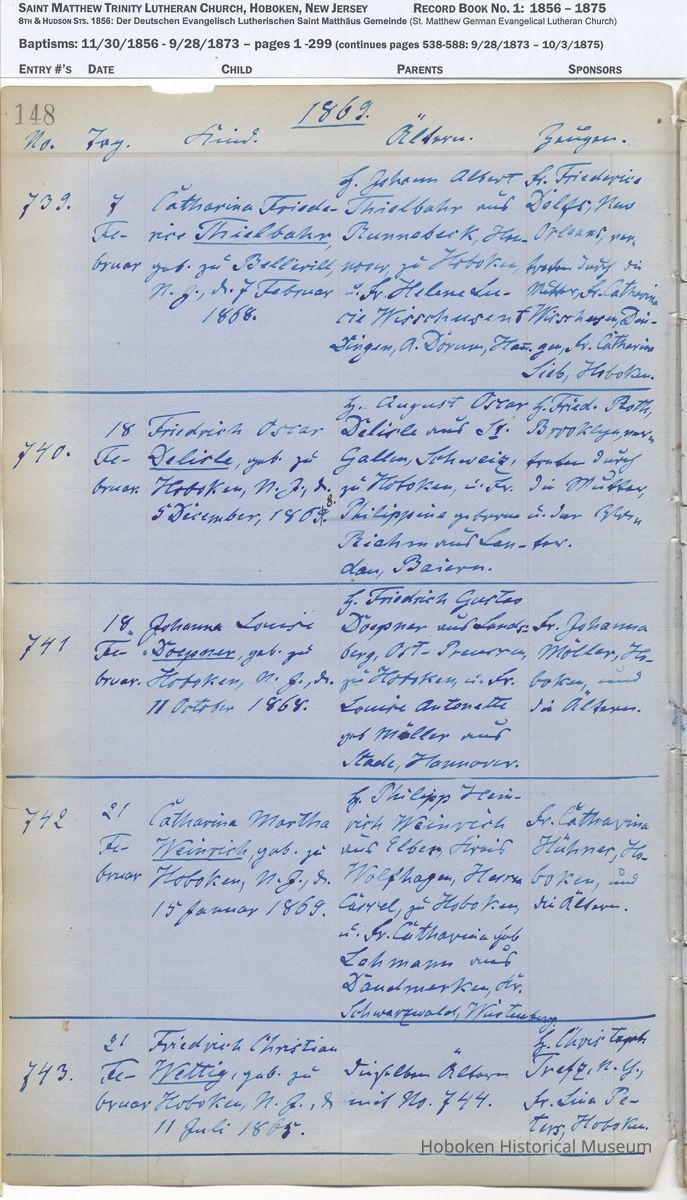 SAINT MATTHEW TRINITY LUTHERAN CHURCH, HOBOKEN, NEW JERSEY RECORD BOOK NO. 1: 1856 – 1875
8TH & HUDSON STS. 1856: Der Deutschen Evangelisch Lutherischen Saint Matthäus Gemeinde (St. Matthew German Evangelical Lutheran Church)
Baptisms: 11/30/1856 - 9/28/1873 – pages 1 -299 (continues pages 538-588: 9/28/1873 – 10/3/1875)
ENTRY #'S DATE CHILD PARENTS SPONSORS
148
1869.
No. Tag. Kind. Ältern. Zeugen.
739.
7
Fe-
bruar
Catharina Friede-
rice Thielbahr,
geb. zu Bellevill,
N. J., d. 7 Februar
1868.
H. Johann Albert
Thielbahr aus
Runnebeck, Han-
nover, zu Hoboken,
u. Fr. Helene Lu-
cie Wisschusen
Dingen, A. Dorum, Han.
Fr. Friederice
Delfs, New
Orleans, ver-
treten durch die
Mutter, Fr. Catharina
Wisschusen, Din-
gen, Fr. Catharina
Lieb, Hoboken.
740.
18
Fe-
bruar.
Friedrich Oscar
Delisle, geb. zu
Hoboken, N. J., d.
5 December, 1868.
H. August Oscar
Delisle aus St.
Gallen, Schweiz,
zu Hoboken, u. Fr.
Philippina geborene
Riehm aus Lan-
dau, Baiern.
H. Fried. Roth,
Brooklyn, ver-
treten durch
die Mutter,
u. der
741
18
Fe-
bruar.
Johanna Louise
Doepner, geb. zu
Hoboken, N. J., d.
11 October 1868.
H. Friedrich Gustav
Doepner aus Lands-
berg, Ost-Preussen,
zu Hoboken, u. Fr.
Louise Antonette
geb Möller aus
Stade, Hannover.
Fr. Johanna
Möller, Ho-
boken, und
die Ältern.
742
21
Fe-
bruar
Catharina Martha
Weinrich, geb. zu
Hoboken, N. J., d.
15 Januar 1869.
H. Philipp Hein-
rich Weinrich
aus Elben, Kreis
Wolfhagen, Hessen
Cassel, zu Hoboken,
u. Fr. Catharina geb
Lehmann aus
Schwarzwald, Würtenberg
Fr. Catharina
Hühner, Ho-
boken, und
die Ältern.
743.
21
Fe-
bruar
Friedrich Christian
Wettig, geb. zu
Hoboken, N. J., d
11 Juli 1865.
dieselben Ältern
mit No. 744.
H. Christoph
Tretz, N. Y.,
Fr. Lina Pe-
ters, Hoboken.
Hoboken Historical Museum